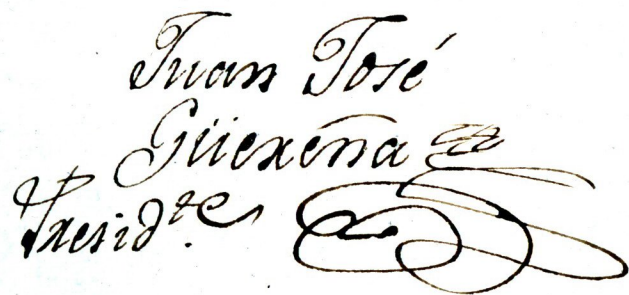 Juan José
Güexeña
Presid.te